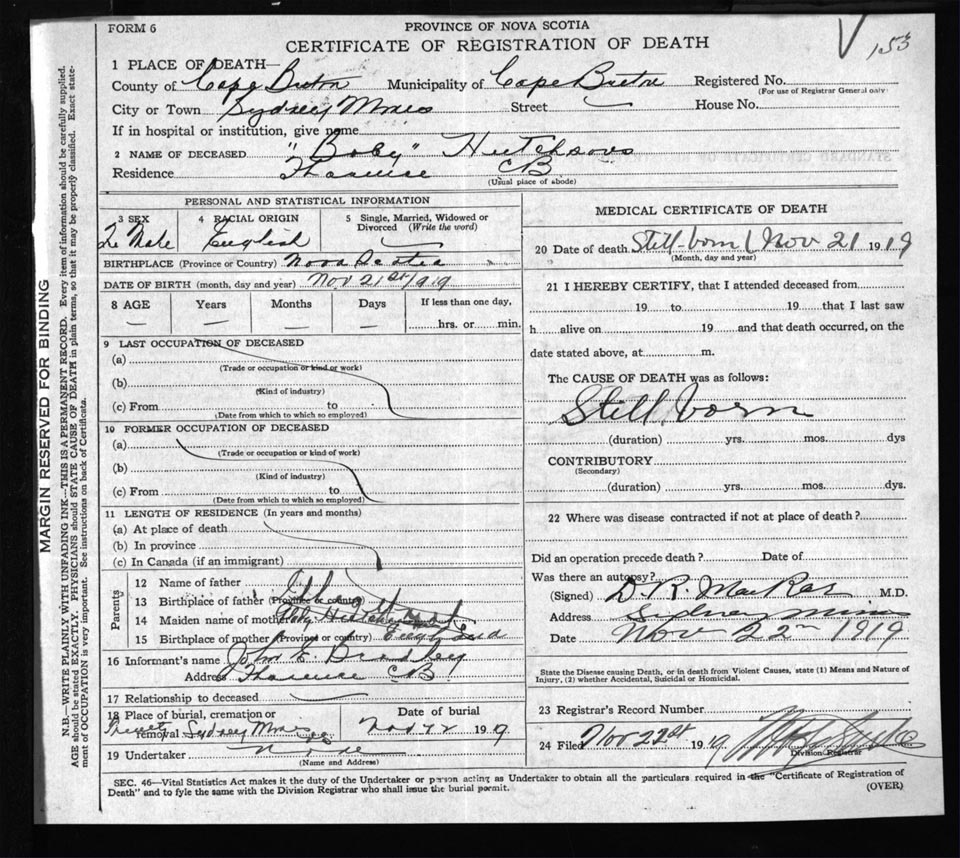 FORM 6
PROVINCE OF NOVA SCOTIA
CERTIFICATE OF REGISTRATION OF DEATH
153
1 PLACE OF DEATH—
County of Cape Breton Municipality of Cape Breton Registered No.
(For use of Registrar General only)
City or Town Sydney Mines Street House No.
If in hospital or institution, give name
2 NAME OF DECEASED "Baby" Hutchson
Residence Florence CB
(Usual place of abode)
PERSONAL AND STATISTICAL INFORMATION
3 SEX 4 RACIAL ORIGIN 5 Single, Married, Widowed or Divorced (Write the word)
Fe Male English
BIRTHPLACE (Province or Country) Nova Scotia
DATE OF BIRTH (month, day and year) Nov 21st 1919
8 AGE Years Months Days If less than one day,
hrs. or min.
9 LAST OCCUPATION OF DECEASED
(a)
(Trade or occupation or kind of work)
(b)
(Kind of industry)
(c) From to
(Date from which to which so employed)
10 FORMER OCCUPATION OF DECEASED
(a)
(Trade or occupation or kind of work)
(b)
(Kind of industry)
(c) From to
(Date from which to which so employed)
11 LENGTH OF RESIDENCE (In years and months)
(a) At place of death
(b) In province
(c) In Canada (if an immigrant)
Parents
12 Name of father
13 Birthplace of father (Province or country)
14 Maiden name of mother
15 Birthplace of mother (Province or country) England
16 Informant's name John E. Bradley
Address Florence CB
17 Relationship to deceased
18 Place of burial, cremation or removal Sydney Mines
Date of burial
Nov 22 1919
19 Undertaker None
(Name and Address)
MEDICAL CERTIFICATE OF DEATH
20 Date of death Still-born Nov 21 1919
(Month, day and year)
21 I HEREBY CERTIFY, that I attended deceased from
19 to 19 that I last saw
h alive on 19 and that death occurred, on the
date stated above, at m.
The CAUSE OF DEATH was as follows:
Still born
(duration) yrs. mos. dys
CONTRIBUTORY
(Secondary)
(duration) yrs. mos. dys.
22 Where was disease contracted if not at place of death?
Did an operation precede death? Date of
Was there an autopsy?
(Signed) D. R. MacRae M.D.
Address Sidney Mines
Date Nov 22nd 1919
State the Disease causing Death, or in death from Violent Causes, state (1) Means and Nature of
Injury, (2) whether Accidental, Suicidal or Homicidal.
23 Registrar's Record Number
24 Filed Nov 22st 1919
Division Registrar
SEC. 46—Vital Statistics Act makes it the duty of the Undertaker or person acting as Undertaker to obtain all the particulars required in the "Certificate of Registration of
Death" and to fyle the same with the Division Registrar who shall issue the burial permit.
(OVER)
MARGIN RESERVED FOR BINDING
N.B.—WRITE PLAINLY WITH UNFADING INK—THIS IS A PERMANENT RECORD. Every item of information should be carefully supplied.
AGE should be stated EXACTLY. PHYSICIANS should STATE CAUSE OF DEATH in plain terms, so that it may be properly classified. Exact state-
ment of OCCUPATION is very important. See instructions on back of Certificate.